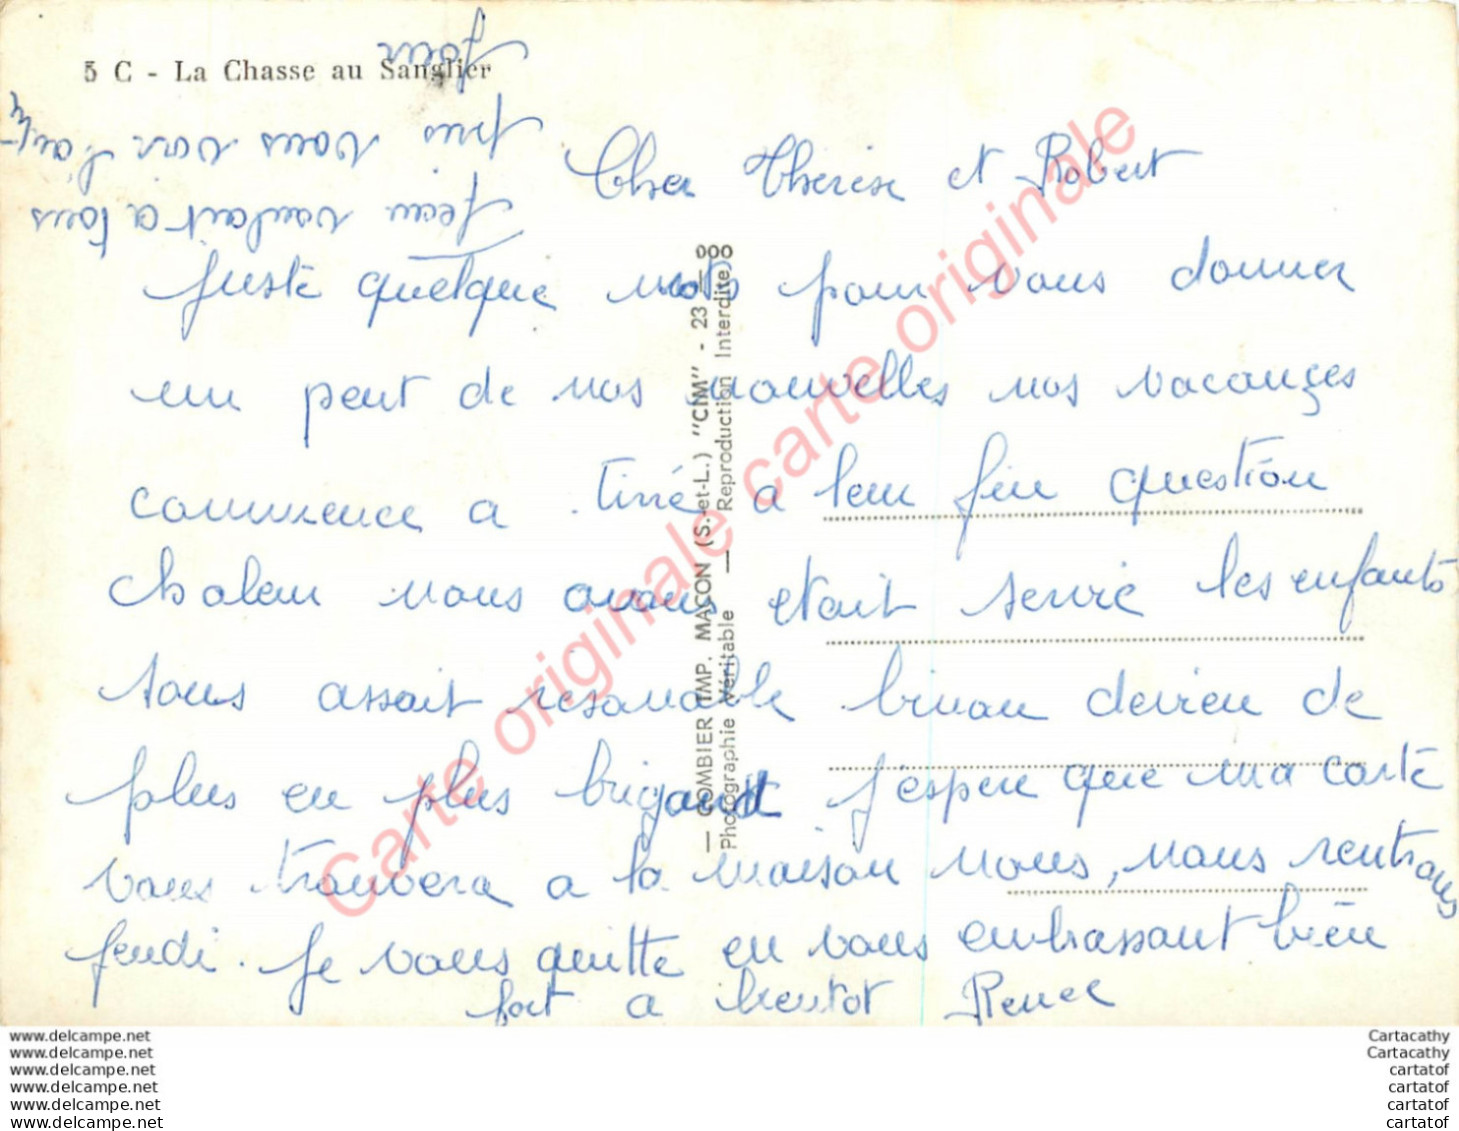 5 C - La Chasse au Sanglier
Cher Therese et Robert
Juste quelque mots pour vous donner
un peut de nos nouvelles nos vacances
commence a tiré a leur fin question
chaleur nous avons etait servie les enfants
sous assait resonable binau devien de
plus en plus brigand j'espere que ma carte
vous trouvera a la maison nous, nous rentrons
jeudi. Je vous quitte en vous embrassant bien
fort a bientot Renee
Jean voulait a tous
pris vous voir l'autre
jour
— COMBIER IMP. MACON (S.-et-L.) "CIM" - 23 —
Photographie Véritable — Reproduction Interdite
Carte originale carte originale
www.delcampe.net
www.delcampe.net
www.delcampe.net
www.delcampe.net
www.delcampe.net
www.delcampe.net
Cartacathy
Cartacathy
cartatof
cartatof
cartatof
cartatof